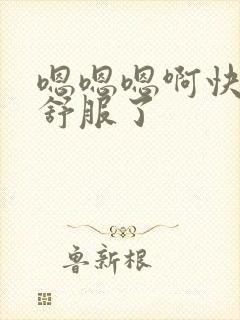 嗯嗯嗯啊快
舒服了
鲁新根